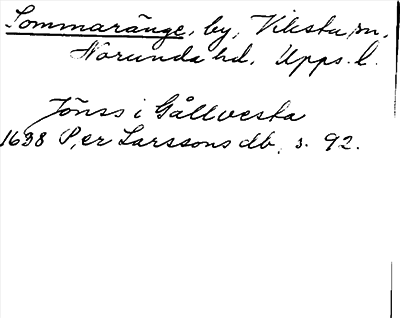 Sommaränge, by, Viksta sn,
Norunda hd. Upps. l.
Jönss i Gållvesta
1638 Per Larssons db. s. 92.